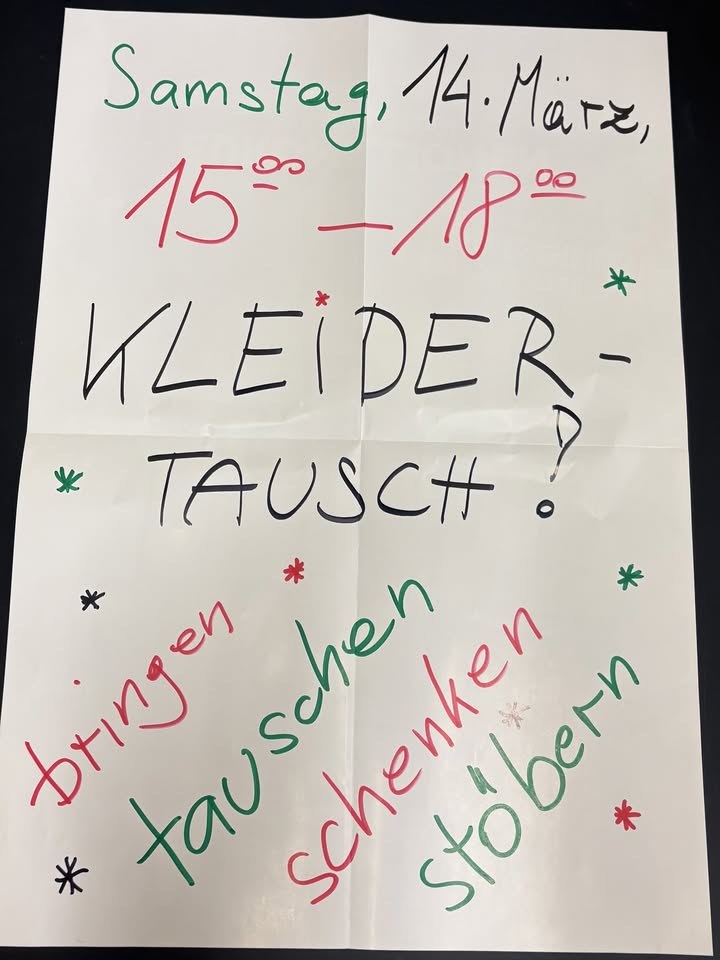 Samstag, 14. März,
15⁰⁰ — 18⁰⁰
KLEiDER-
TAUSCH!
bringen
tauschen
schenken
stöbern